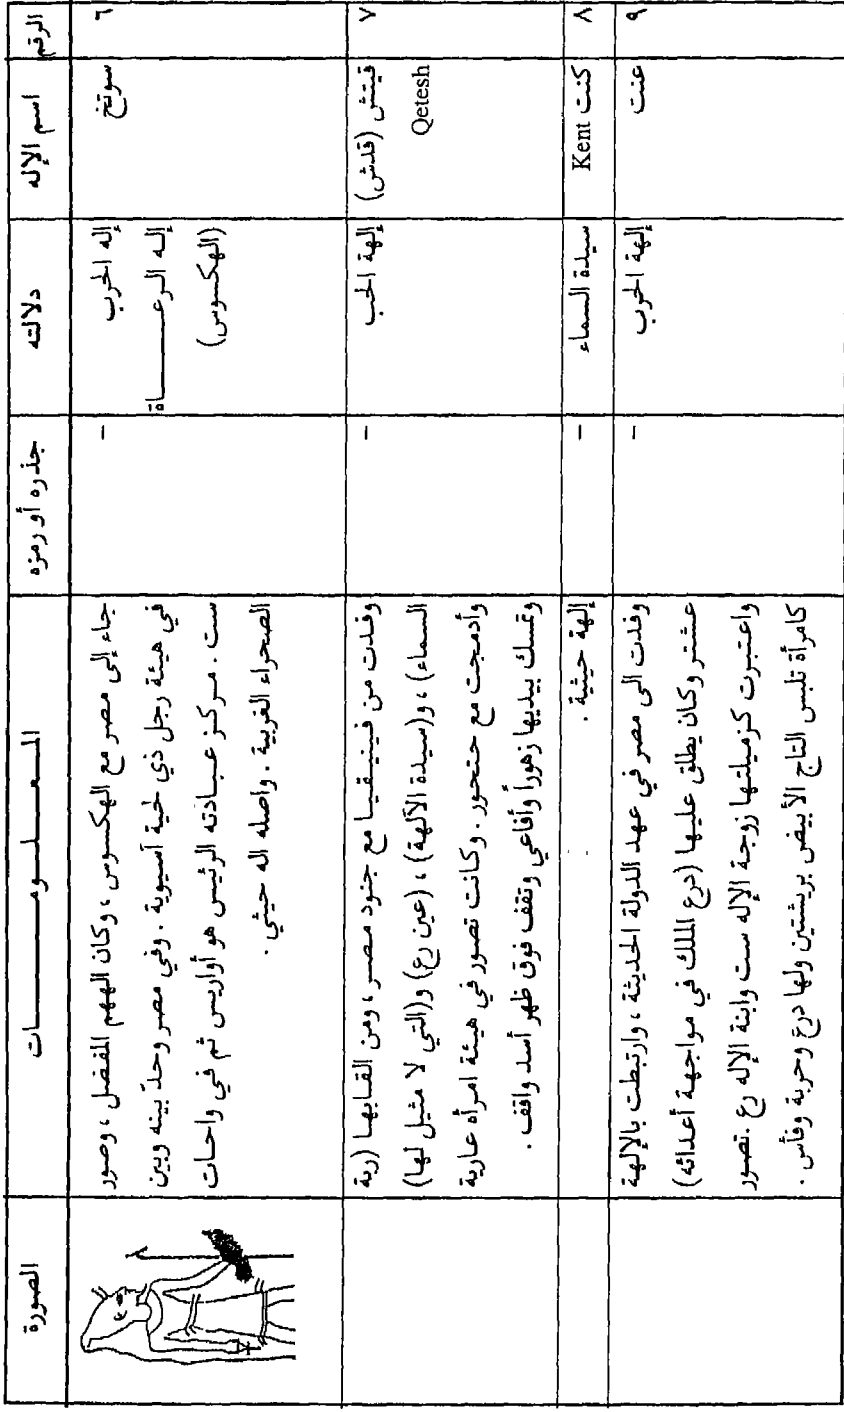 الرقم
اسم الإله
دلالته
جذره أو رمزه
المعلومات
الصورة
٦
سوتخ
إله الحرب
إله الرعاة
(الهكسوس)
-
جاء إلى مصر مع الهكسوس ، وكان الههم المفضل ، وصور
في هيئة رجل ذي لحية آسيوية . وفي مصر وحدّ بينه وبين
ست . مركز عبادته الرئيس هو أواريس ثم في واحات
الصحراء الغربية . واصله اله حيثي .
٧
قيتش (قدش)
Qetesh
إلهة الحب
-
وفدت من فينيقيا مع جنود مصر ، ومن القابها (ربة
السماء) ، و(سيدة الآلهة) ، (عين رع) و(التي لا مثيل لها)
وأدمجت مع حتحور . وكانت تصور في هيئة امرأه عارية
وتمسك بيديها زهوراً وأفاعي وتقف فوق ظهر أسد واقف .
٨
كنت Kent
سيدة السماء
-
إلهة حيثية .
٩
عنت
إلهة الحرب
-
وفدت الى مصر في عهد الدولة الحديثة ، وارتبطت بالإلهة
عشتر وكان يطلق عليها (درع الملك في مواجهة أعدائه)
واعتبرت كزميلتها زوجة الإله ست وابنة الإله رع . تصور
كامرأة تلبس التاج الأبيض بريشتين ولها درع وحربة وفأس .